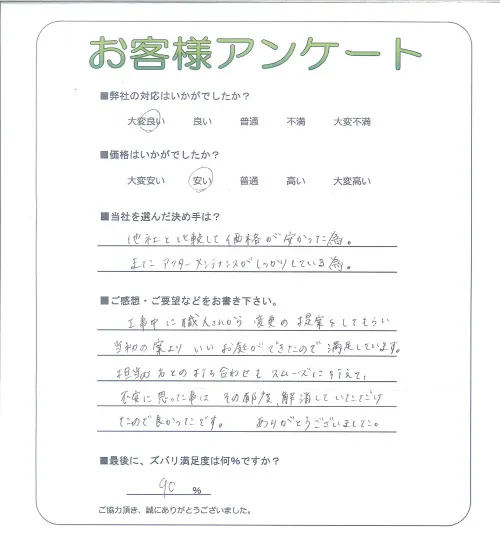 お客様アンケート
■弊社の対応はいかがでしたか？
大変良い 良い 普通 不満 大変不満
■価格はいかがでしたか？
大変安い 安い 普通 高い 大変高い
■当社を選んだ決め手は？
他社と比較して価格が安かった為。
またアフターメンテナンスがしっかりしている為。
■ご感想・ご要望などをお書き下さい。
工事中に職人さんから変更の提案をしてもらい
当初の案よりいいお庭ができたので満足しています。
担当の方との打ち合わせもスムーズに行えて、
不安に思った事はその都度、解消していただけ
たので良かったです。 ありがとうございました。
■最後に、ズバリ満足度は何%ですか？
90 %
ご協力頂き、誠にありがとうございました。